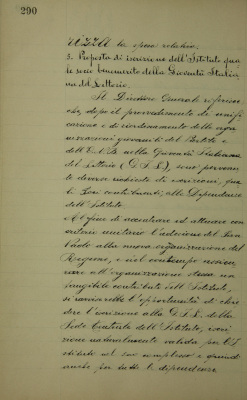 290
la spesa relativa.
5. Proposta di iscrizione dell'Istituto qua
le socio benemerito della Gioventù Italia
na del Littorio.
Il Direttore Generale riferisce
che, dopo il provvedimento di unifi
cazione e di riordinamento delle orga
nizzazioni giovanili del Partito e
dell'O.N.B. nella Gioventù Italiana
del Littorio (G.I.L.) sono pervenute
diverse richieste di iscrizioni, qua
li Soci contribuenti, alle Dipendenze
dell'Istituto.
Al fine di accentrare ed attuare con
criterio unitario l'adesione del San
Paolo alla nuova organizzazione del
Regime, e nel contempo assicu
rare all'organizzazione stessa un
tangibile contributo dell'Istituto,
si ravviserebbe l'opportunità di
dere l'iscrizione alla G.I.L. della
Sede Centrale dell'Istituto, iscri
zione naturalmente valida per l'I
stituto nel suo complesso e quindi
anche per tutte le dipendenze